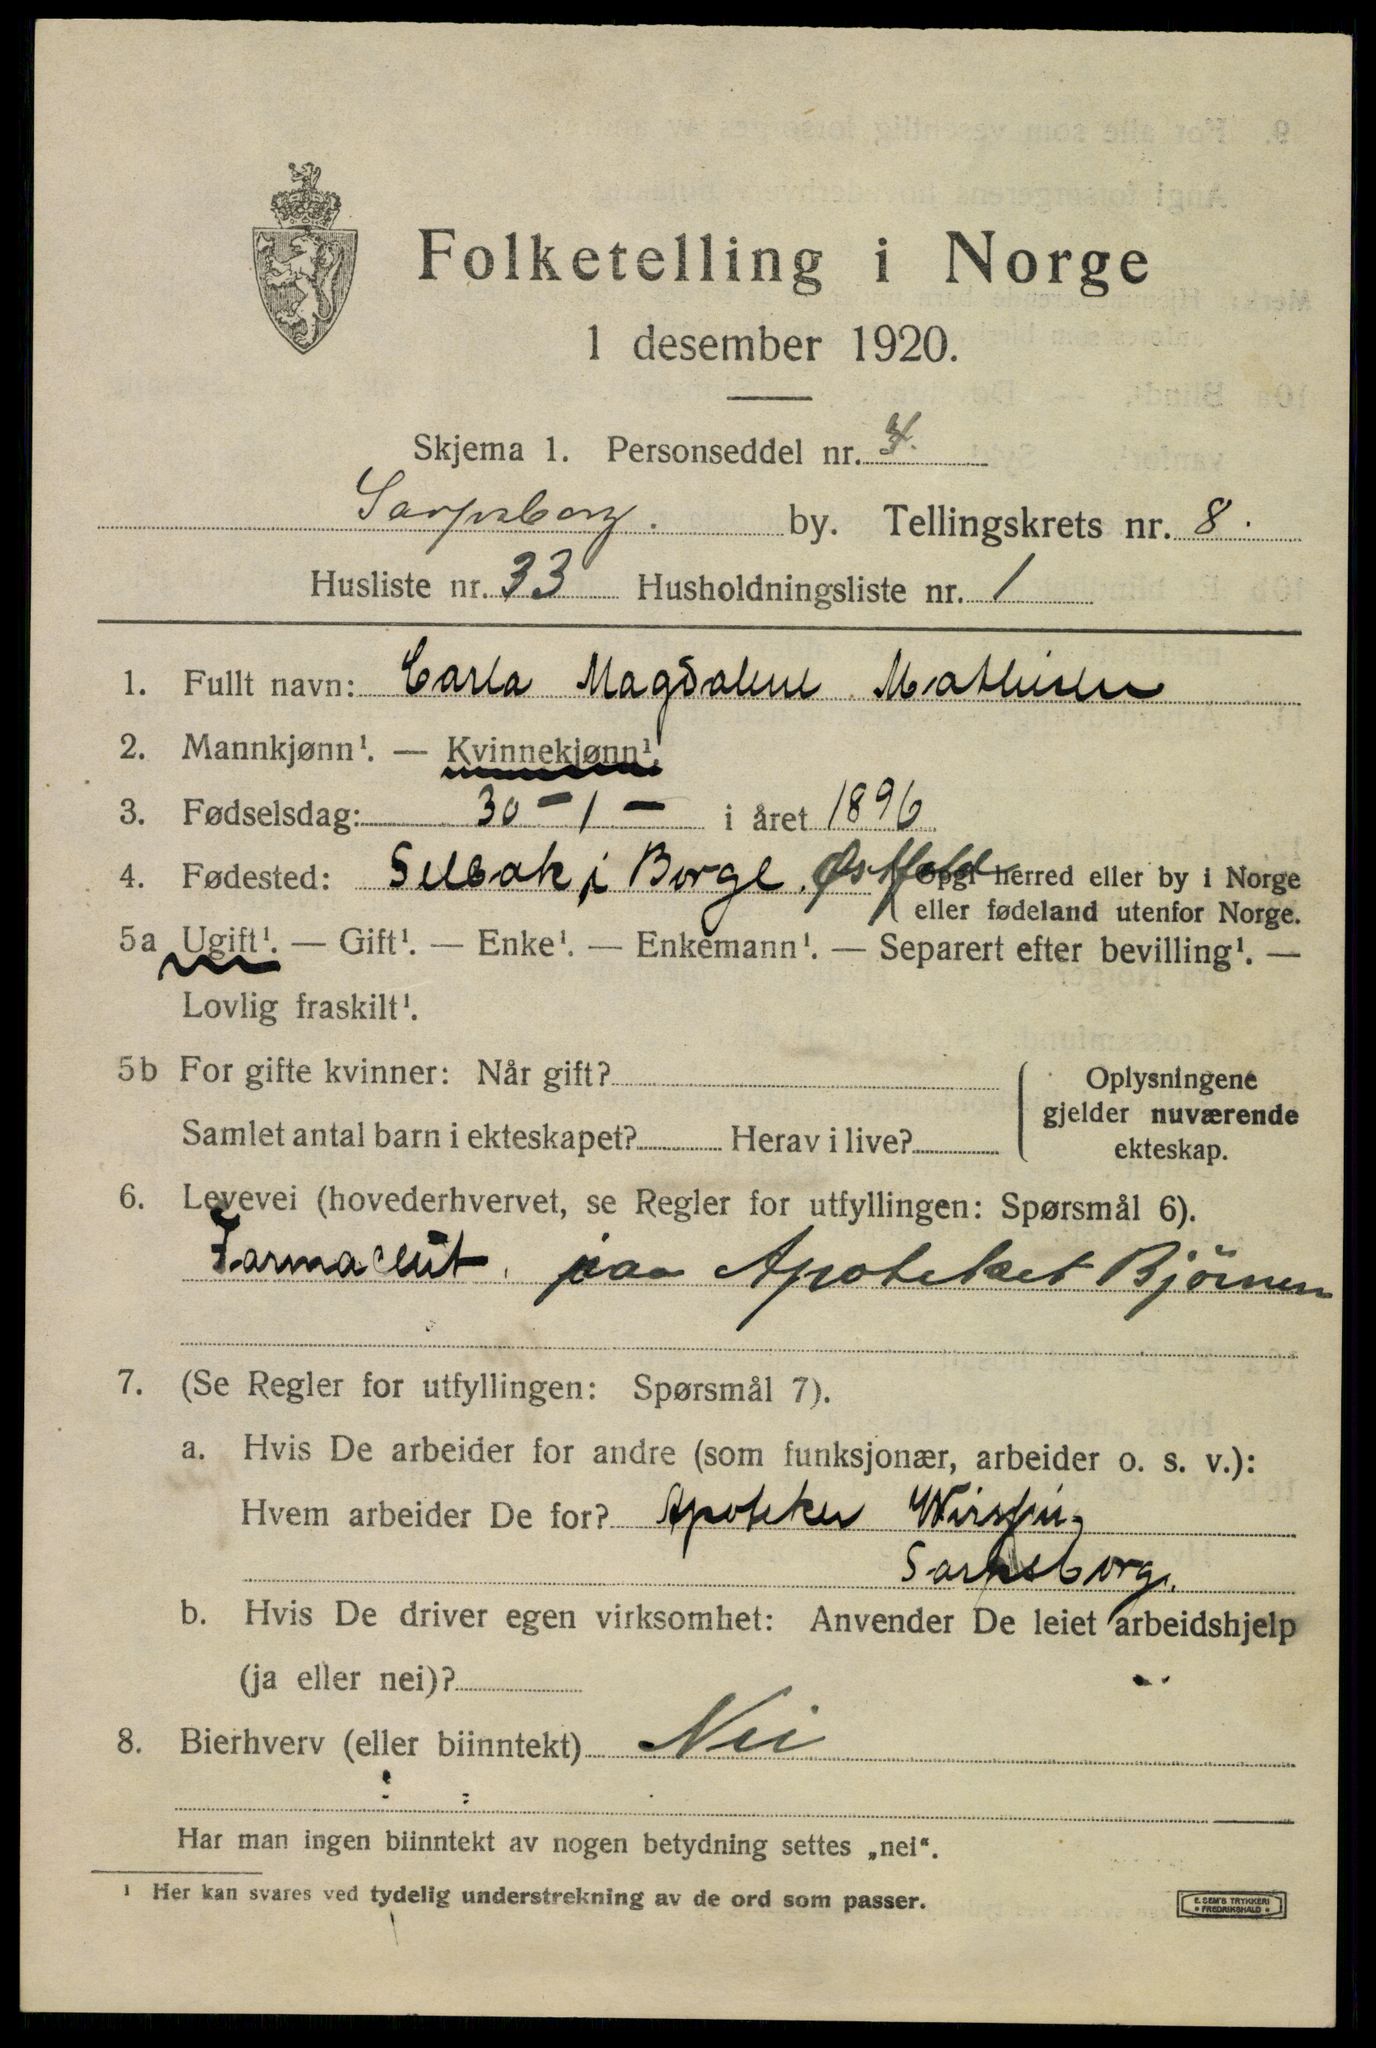 Folketelling i Norge
1 desember 1920.
Skjema 1. Personseddel nr. 4.
Sarpsborg. by. Tellingskrets nr. 8.
Husliste nr. 33 Husholdningsliste nr. 1
1. Fullt navn: Carla Magdalene Mathisen
2. Mannkjønn¹. — Kvinnekjønn¹.
3. Fødselsdag: 30 - 1 - i året 1896
4. Fødested: Selbak i Borge. Østfold (Opgi herred eller by i Norge
eller fødeland utenfor Norge.
5a Ugift¹. — Gift¹. — Enke¹. — Enkemann¹. — Separert efter bevilling¹. —
Lovlig fraskilt¹.
5b For gifte kvinner: Når gift?
Samlet antal barn i ekteskapet? Herav i live?
Oplysningene
gjelder nuværende
ekteskap.
6. Levevei (hovederhvervet, se Regler for utfyllingen: Spørsmål 6).
Farmaceut. paa Apoteket Bjørnen
7. (Se Regler for utfyllingen: Spørsmål 7).
a. Hvis De arbeider for andre (som funksjonær, arbeider o. s. v.):
Hvem arbeider De for? Apoteker
Sarpsborg.
b. Hvis De driver egen virksomhet: Anvender De leiet arbeidshjelp
(ja eller nei)?
8. Bierhverv (eller biinntekt) Nei
Har man ingen biinntekt av nogen betydning settes „nei“.
¹ Her kan svares ved tydelig understrekning av de ord som passer.
E. SEM'S TRYKKERI
* FREDRIKSHALD *